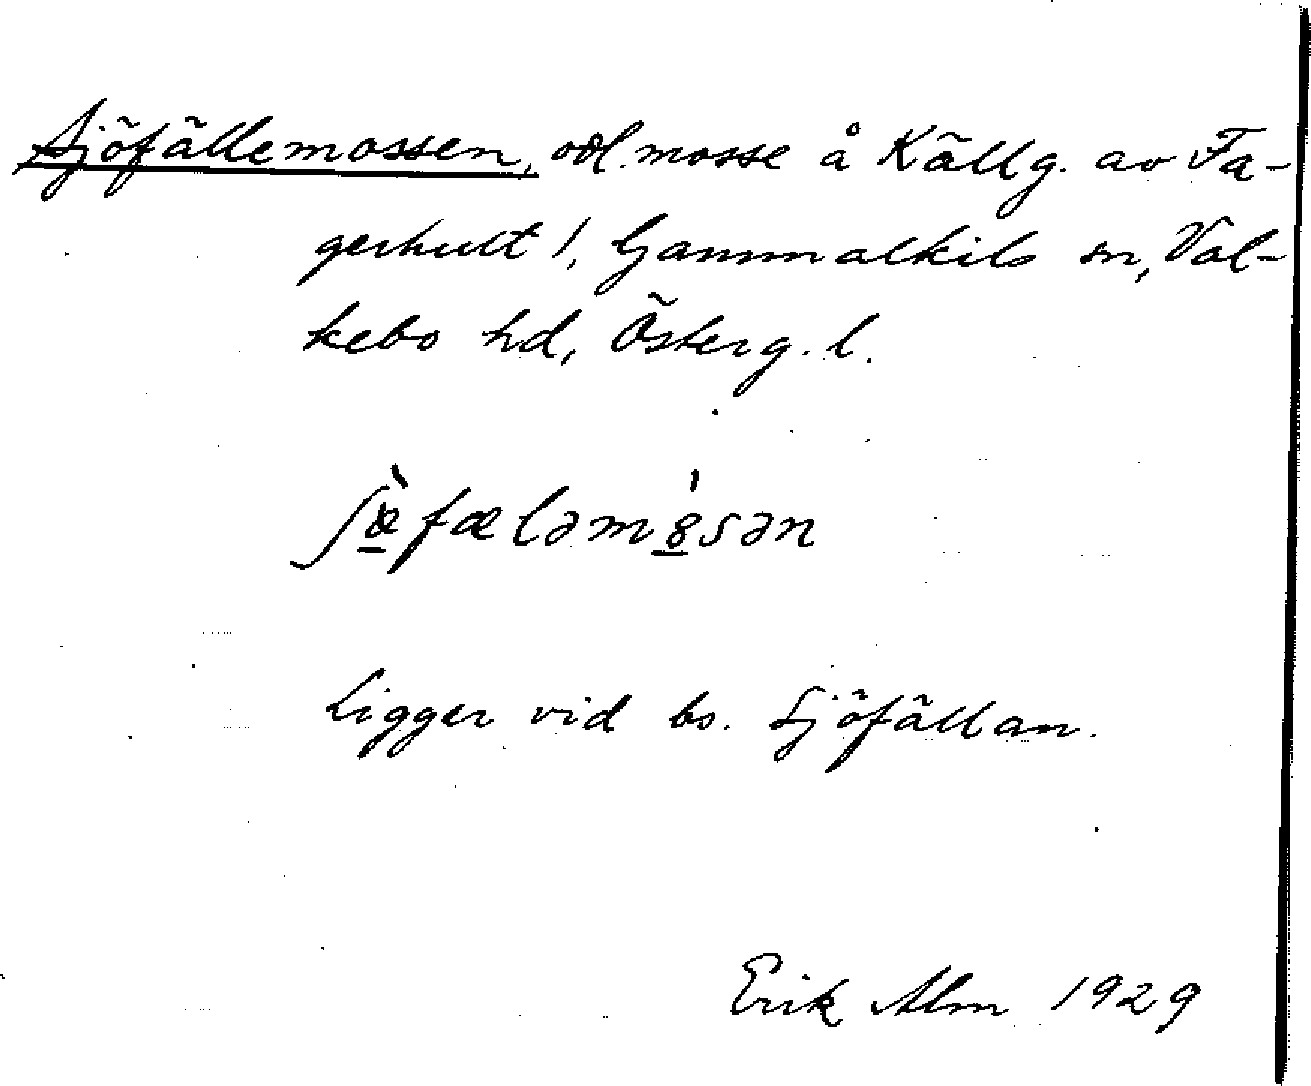 Sjöfällemossen, odl. mosse å Källg. av Fa-
gerhult 1, Gammalkils sn, Val-
kebo hd, Österg. l.
ʃæ̀fæləmɞ́sən
Ligger vid bs. Sjöfällan.
Erik Alm 1929